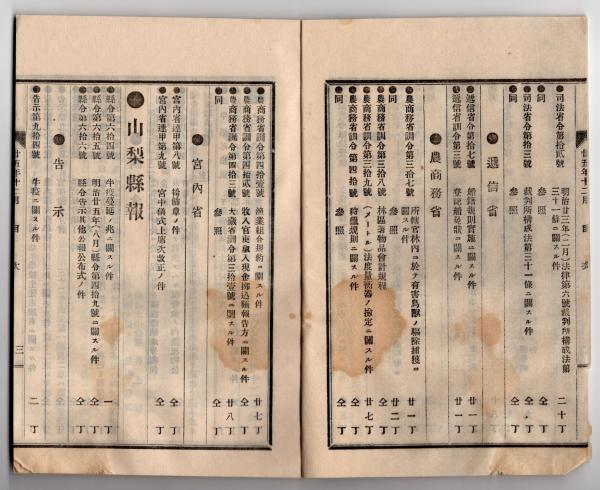 司法省令第拾貳號 明治廿三年(二月)法律第六號裁判所構成法第三十一條ニ關スル件 二十丁
同 參照 仝丁
司法省訓令第三號 裁判所構成法第三十一條ニ關スル件 仝丁
同 參照 仝丁
遞信省
遞信省令第十七號 船籍規則實施ニ關スル件 廿一丁
遞信省訓令第三號 登記船免狀ニ關スル件 廿一丁
農商務省
農商務省訓令第三拾七號 所轄官林内ニ於テ有害鳥獸ノ驅除捕獲ニ關スル件 廿一丁
同 參照 廿二丁
農商務省訓令第三拾八號 林區署物品會計規程 仝丁
農商務省訓令第三拾九號 (メートル)法度量衡器ノ檢定ニ關スル件 廿七丁
同 第四拾號 時獵規則ニ關スル件 仝丁
同 參照 仝丁
廿五年十二月 目次
農商務省訓令第四拾壹號 漁業組合規約ニ關スル件 廿七丁
農商務省訓令第四拾貳號 收入官吏歳入現金拂込額報告方ニ關スル件 仝丁
農商務省訓令第四拾三號 大藏省訓令第三拾壹號ニ關スル件 廿八丁
同 參照 仝丁
宮内省
宮内省達甲第八號 袷幛章ノ件 仝丁
宮内省達甲第九號 宮中儀式上席次改正ノ件 仝丁
山梨縣報
縣令第六拾四號 牛疫蔓延ノ兆ニ關スル件 一丁
縣令第六拾五號 明治廿五年(八月)縣令第四拾九號ニ關スル件 仝丁
縣令第六拾六號 縣令告示其他公報公布式ノ件 仝丁
告示
告示第九拾四號 牛疫ニ關スル件 二丁
廿五年十二月 目次 三